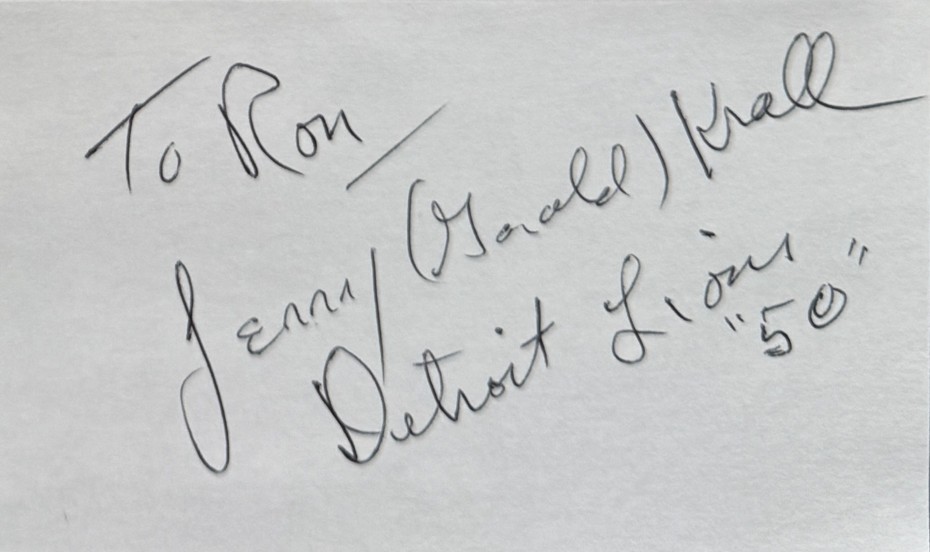 To Ron
Jerry (Gerald) Krall
Detroit Lions
"50"